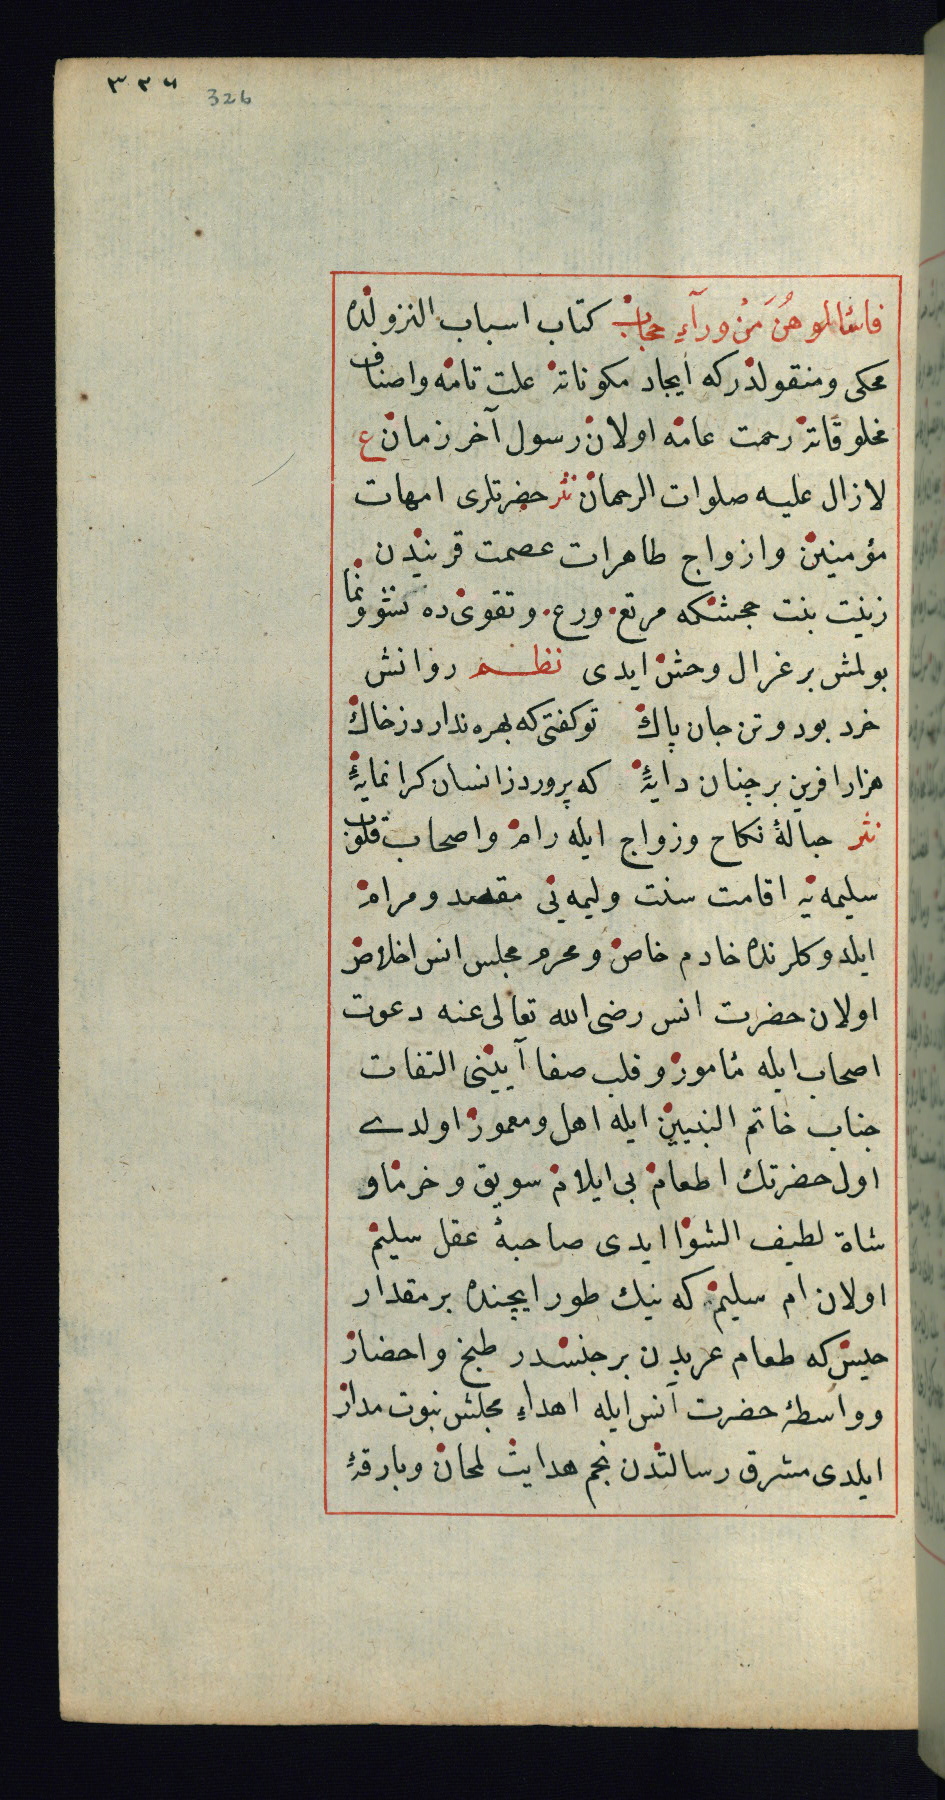 ٣٢٦ 326
فاسئلوهن من ورآء حجاب كتاب اسباب النزولده
محكى و منقولدركه ايجاد مكوناته علت تامه واصناف
مخلوقاته رحمت عامه اولان رسول آخر زمان ع
لازال عليه صلوات الرحمان نثر حضرتلرى امهات
مؤمنين وازواج طاهرات عصمت قرينيدن
زينت بنت جحشكه مرتع ورع و تقوىده نشو ونما
بولمش بر غزال وحش ايدى نظم روانش
خرد بود و تن جان پاك توكفتى كه بهره ندارد ز خاك
هزار افرين بر چنان دايهٔ كه پرورد ز انسان كرانمايهٔ
نثر حبالهٔ نكاح وزواج ايله رام واصحاب قلوب
سليمه يه اقامت سنت وليمه يى مقصد ومرام
ايلدوكلرنده خادم خاص ومحرم مجلس انس اخلاص
اولان حضرت انس رضى الله تعالى عنه دعوت
اصحاب ايله مأمور و قلب صفا آيينى التفات
جناب خاتم النبيين ايله اهل ومعمور اولدى
اول حضرتك اطعام بى ايلام سويق و خرما و
شاة لطيف الشوا ايدى صاحبهٔ عقل سليم
اولان ام سليم كه نيك طور ايچنده بر مقدار
حيس كه طعام عربدن بر جنسدر طبخ و احضار
وواسطهٔ حضرت انس ايله اهداء مجلس نبوت مدار
ايلدى مشرق رسالتدن نجم هدايت لمعان وبارقهٔ